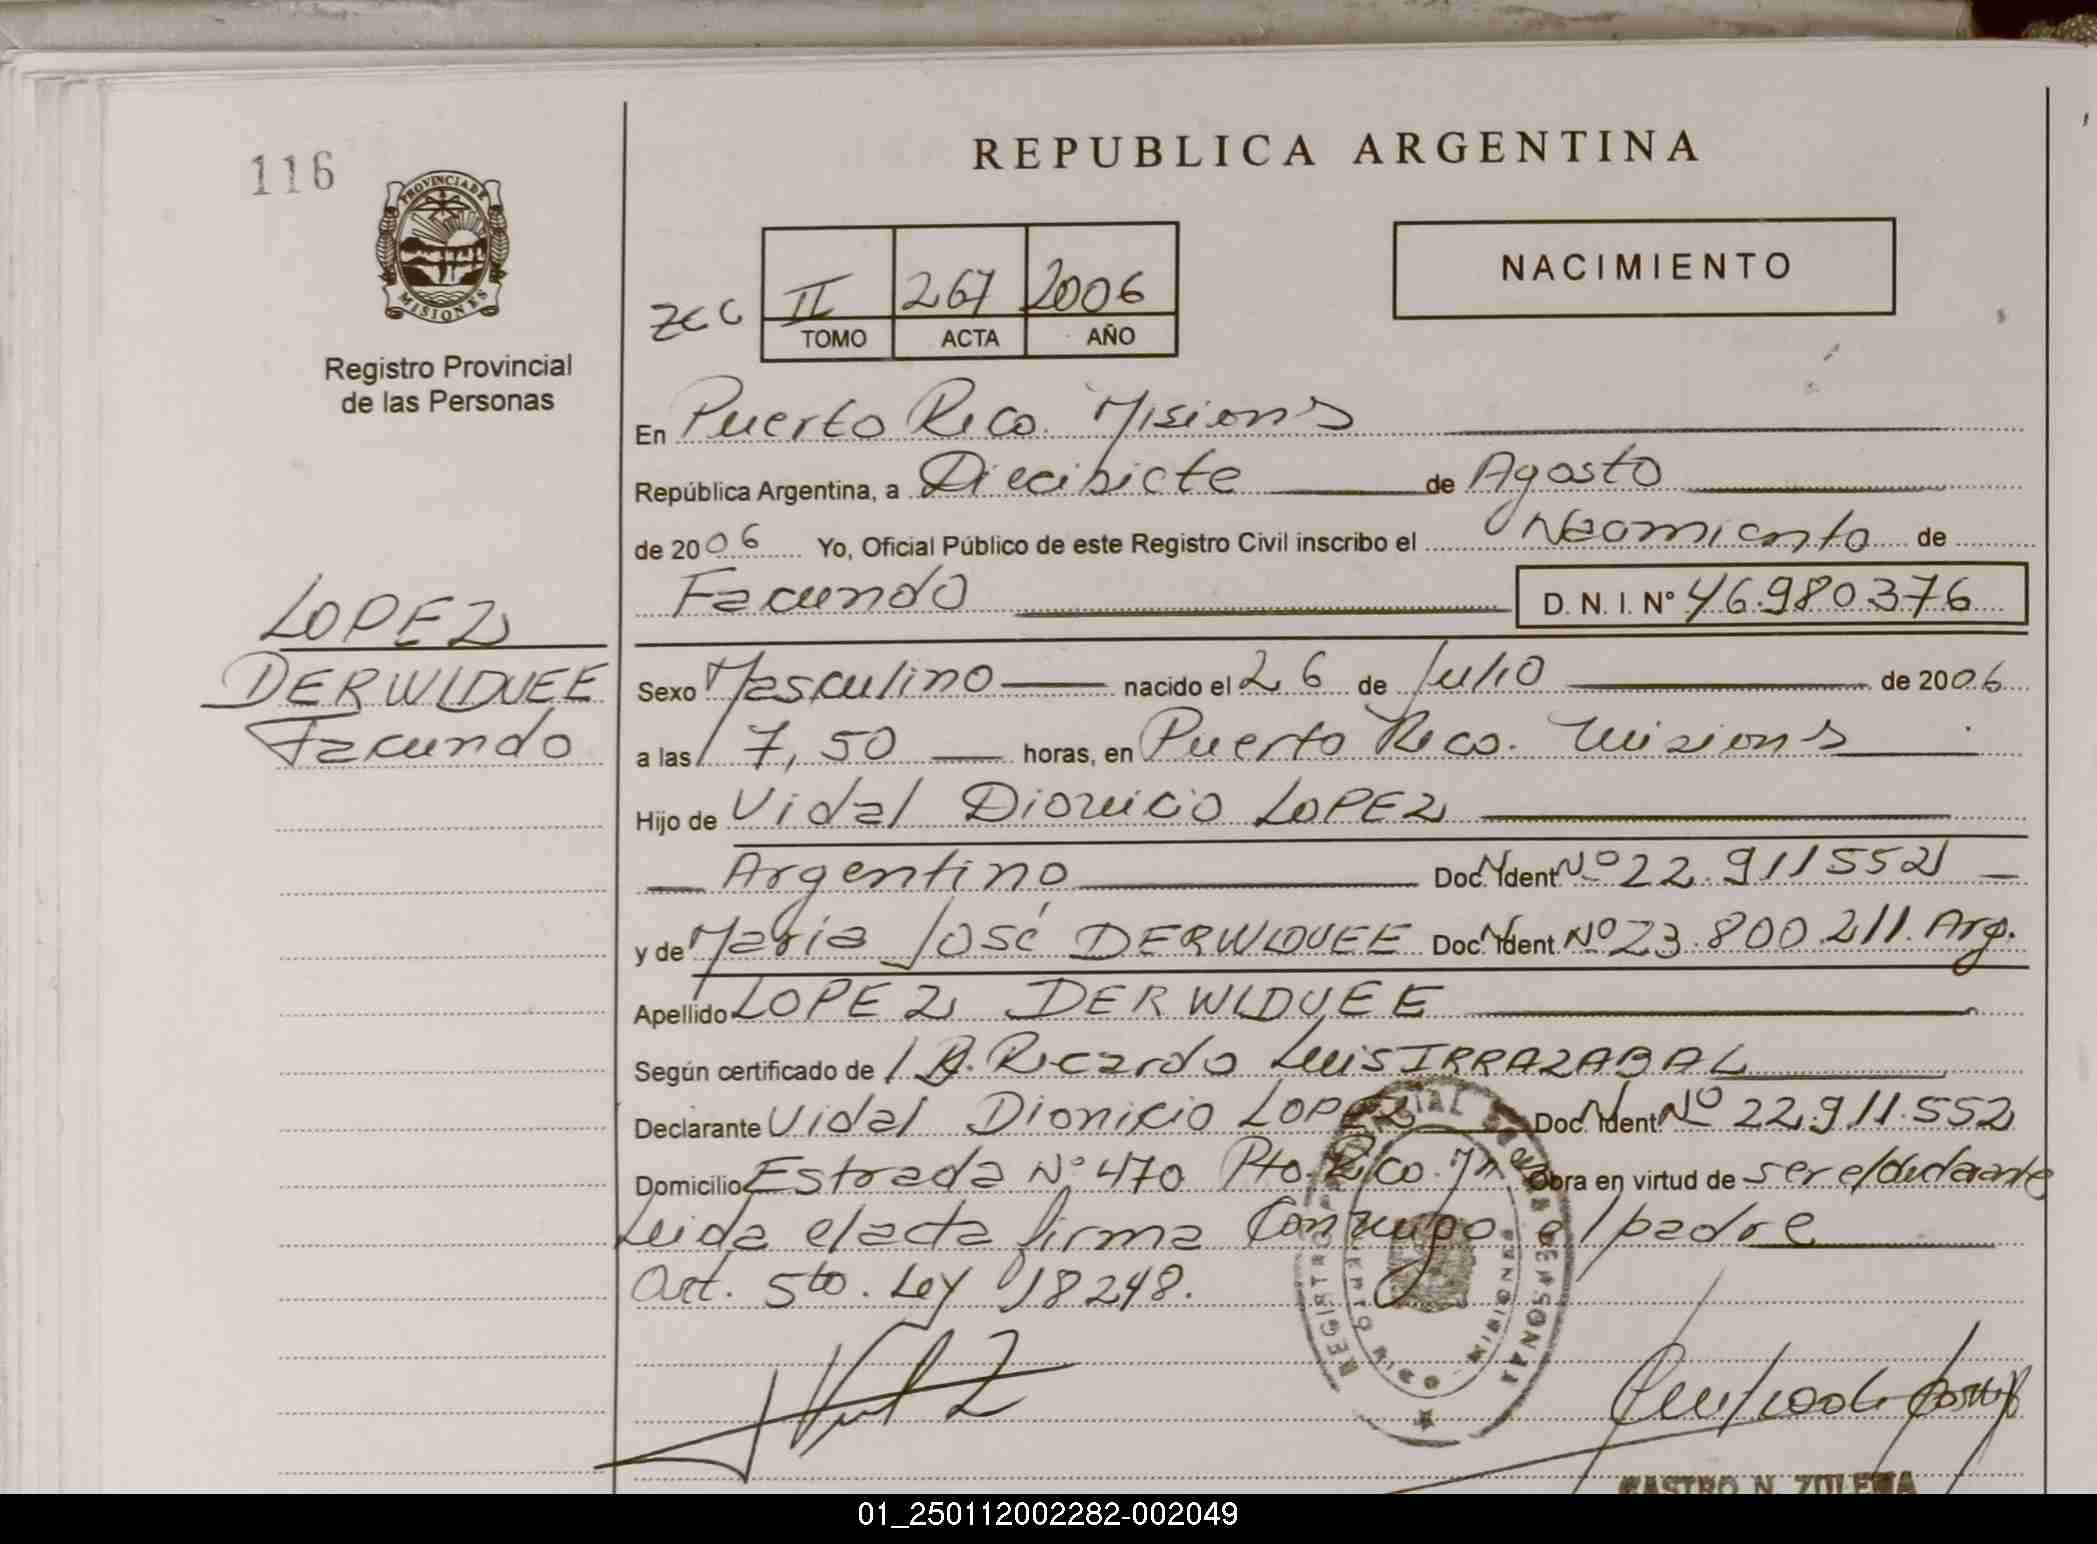 116
PROVINCIA DE
MISIONES
Registro Provincial
de las Personas
REPUBLICA ARGENTINA
NACIMIENTO
II 267 2006
TOMO ACTA AÑO
En Puerto Rico. Misiones
República Argentina, a Diecisiete de Agosto
de 2006 Yo, Oficial Público de este Registro Civil inscribo el Nacimiento de
Facundo D. N. I. Nº 46.980376
LOPEZ
DERWIDUEE
Facundo
Sexo Masculino nacido el 26 de Julio de 2006
a las 17,50 horas, en Puerto Rico. Misiones
Hijo de Vidal Dionicio LOPEZ
Argentino Doc. Ident Nº 22.911552
y de Maria José DERWIDUEE Doc. Ident. Nº 23.800.211. Arg.
Apellido LOPEZ DERWIDUEE
Según certificado de Ricardo Luis IRRAZABAL
Declarante Vidal Dionicio LOPEZ Doc. Ident Nº 22.911.552
Domicilio Estrada Nº 470 Pto. Rico. Mn Obra en virtud de ser el declarante
Leida el acta firma Conmigo el padre
Art. 5to. Ley 18248.
CASTRO N. ZULEMA
01_250112002282-002049